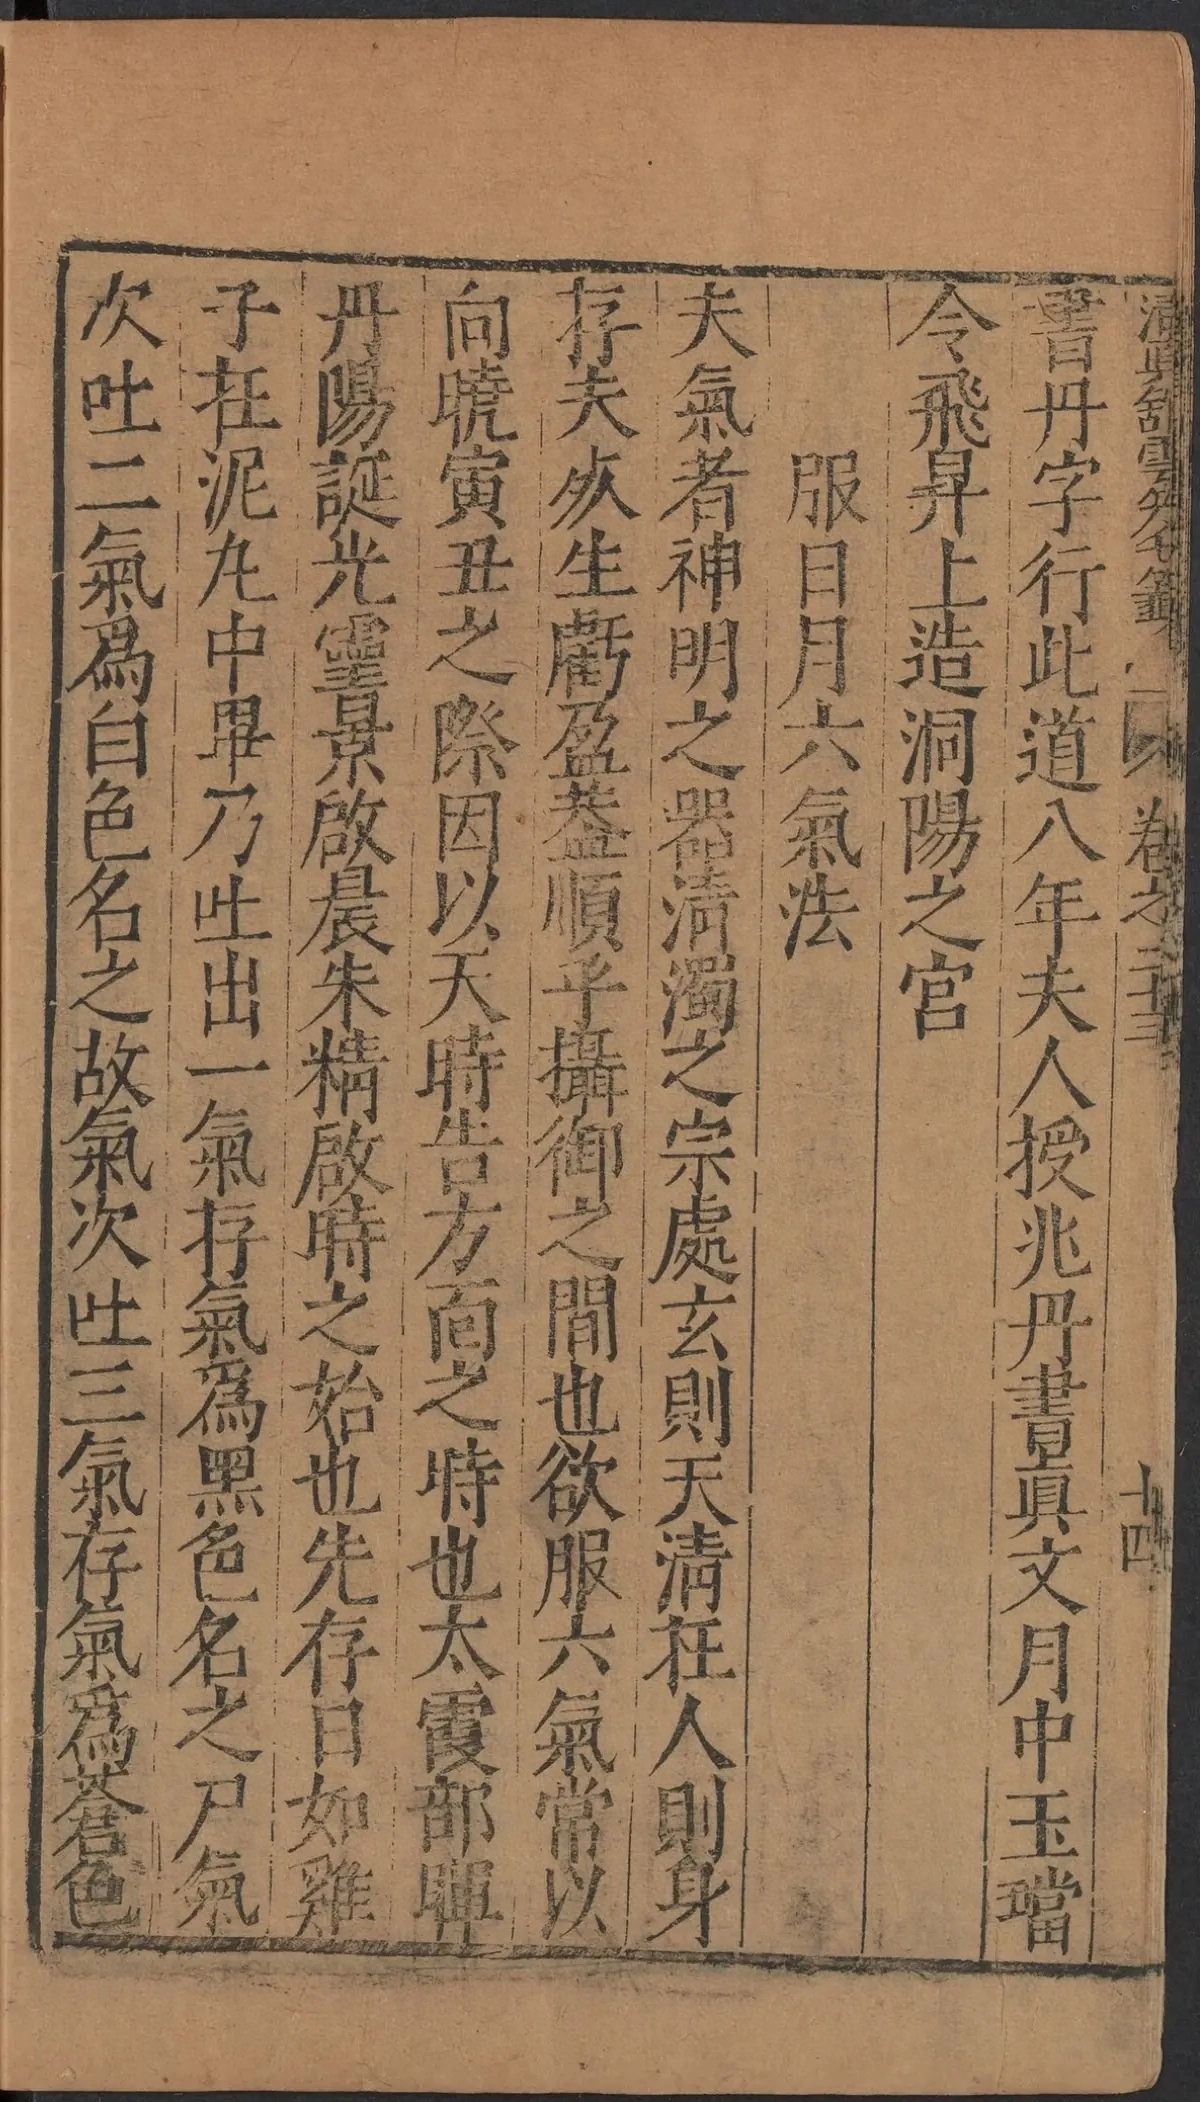 清眞雲笈七籤 卷之二十三 十四
書丹字行此道八年夫人授兆丹書眞文月中玉璫
令飛昇上造洞陽之宮
服日月六氣法
夫氣者神明之器清濁之宗處玄則天清在人則身
存夫死生虧盈葢順乎攝御之間也欲服六氣常以
向曉寅丑之際因以天時告方面之時也太霞部暉
丹陽誕光靈景啟晨朱精啟時之始也先存日如雞
子在泥丸中畢乃吐出一氣存氣爲黑色名之尸氣
次吐二氣爲白色名之故氣次吐三氣存氣爲蒼色